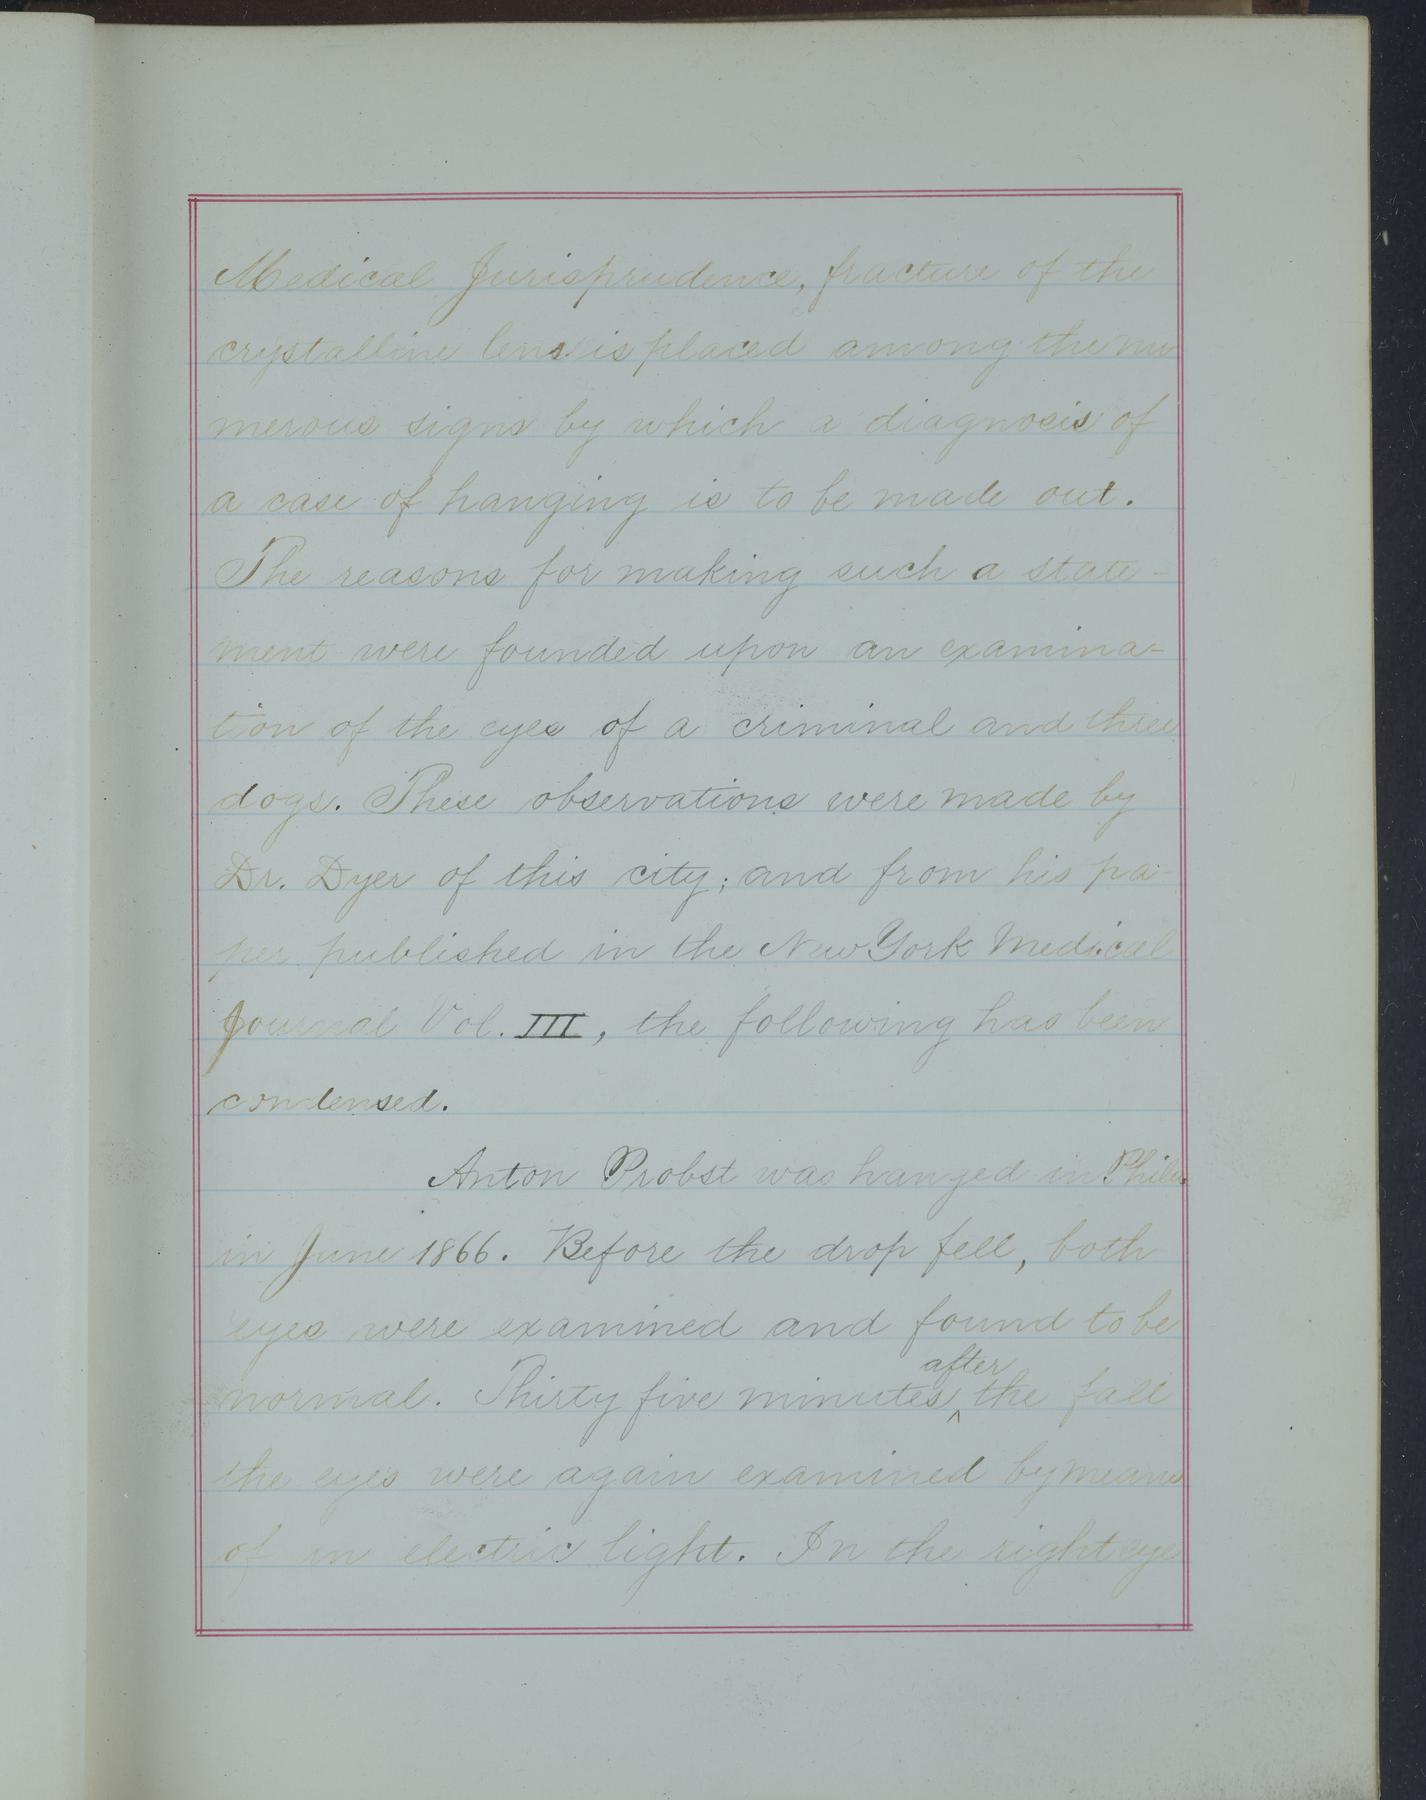 Medical Jurisprudence, fracture of the
crystalline lens is placed among the nu
merous signs by which a diagnosis of
a case of hanging is to be made out.
The reasons for making such a state-
ment were founded upon an examina-
tion of the eyes of a criminal and three
dogs. These observations were made by
Dr. Dyer of this city; and from his pa-
per published in the New York Medical
Journal Vol. III, the following has been
condensed.
Anton Probst was hanged in Phila.
in June 1866. Before the drop fell, both
eyes were examined and found to be
after
normal. Thirty five minutes ^ the fall
the eyes were again examined by means
of an electric light. In the right eye